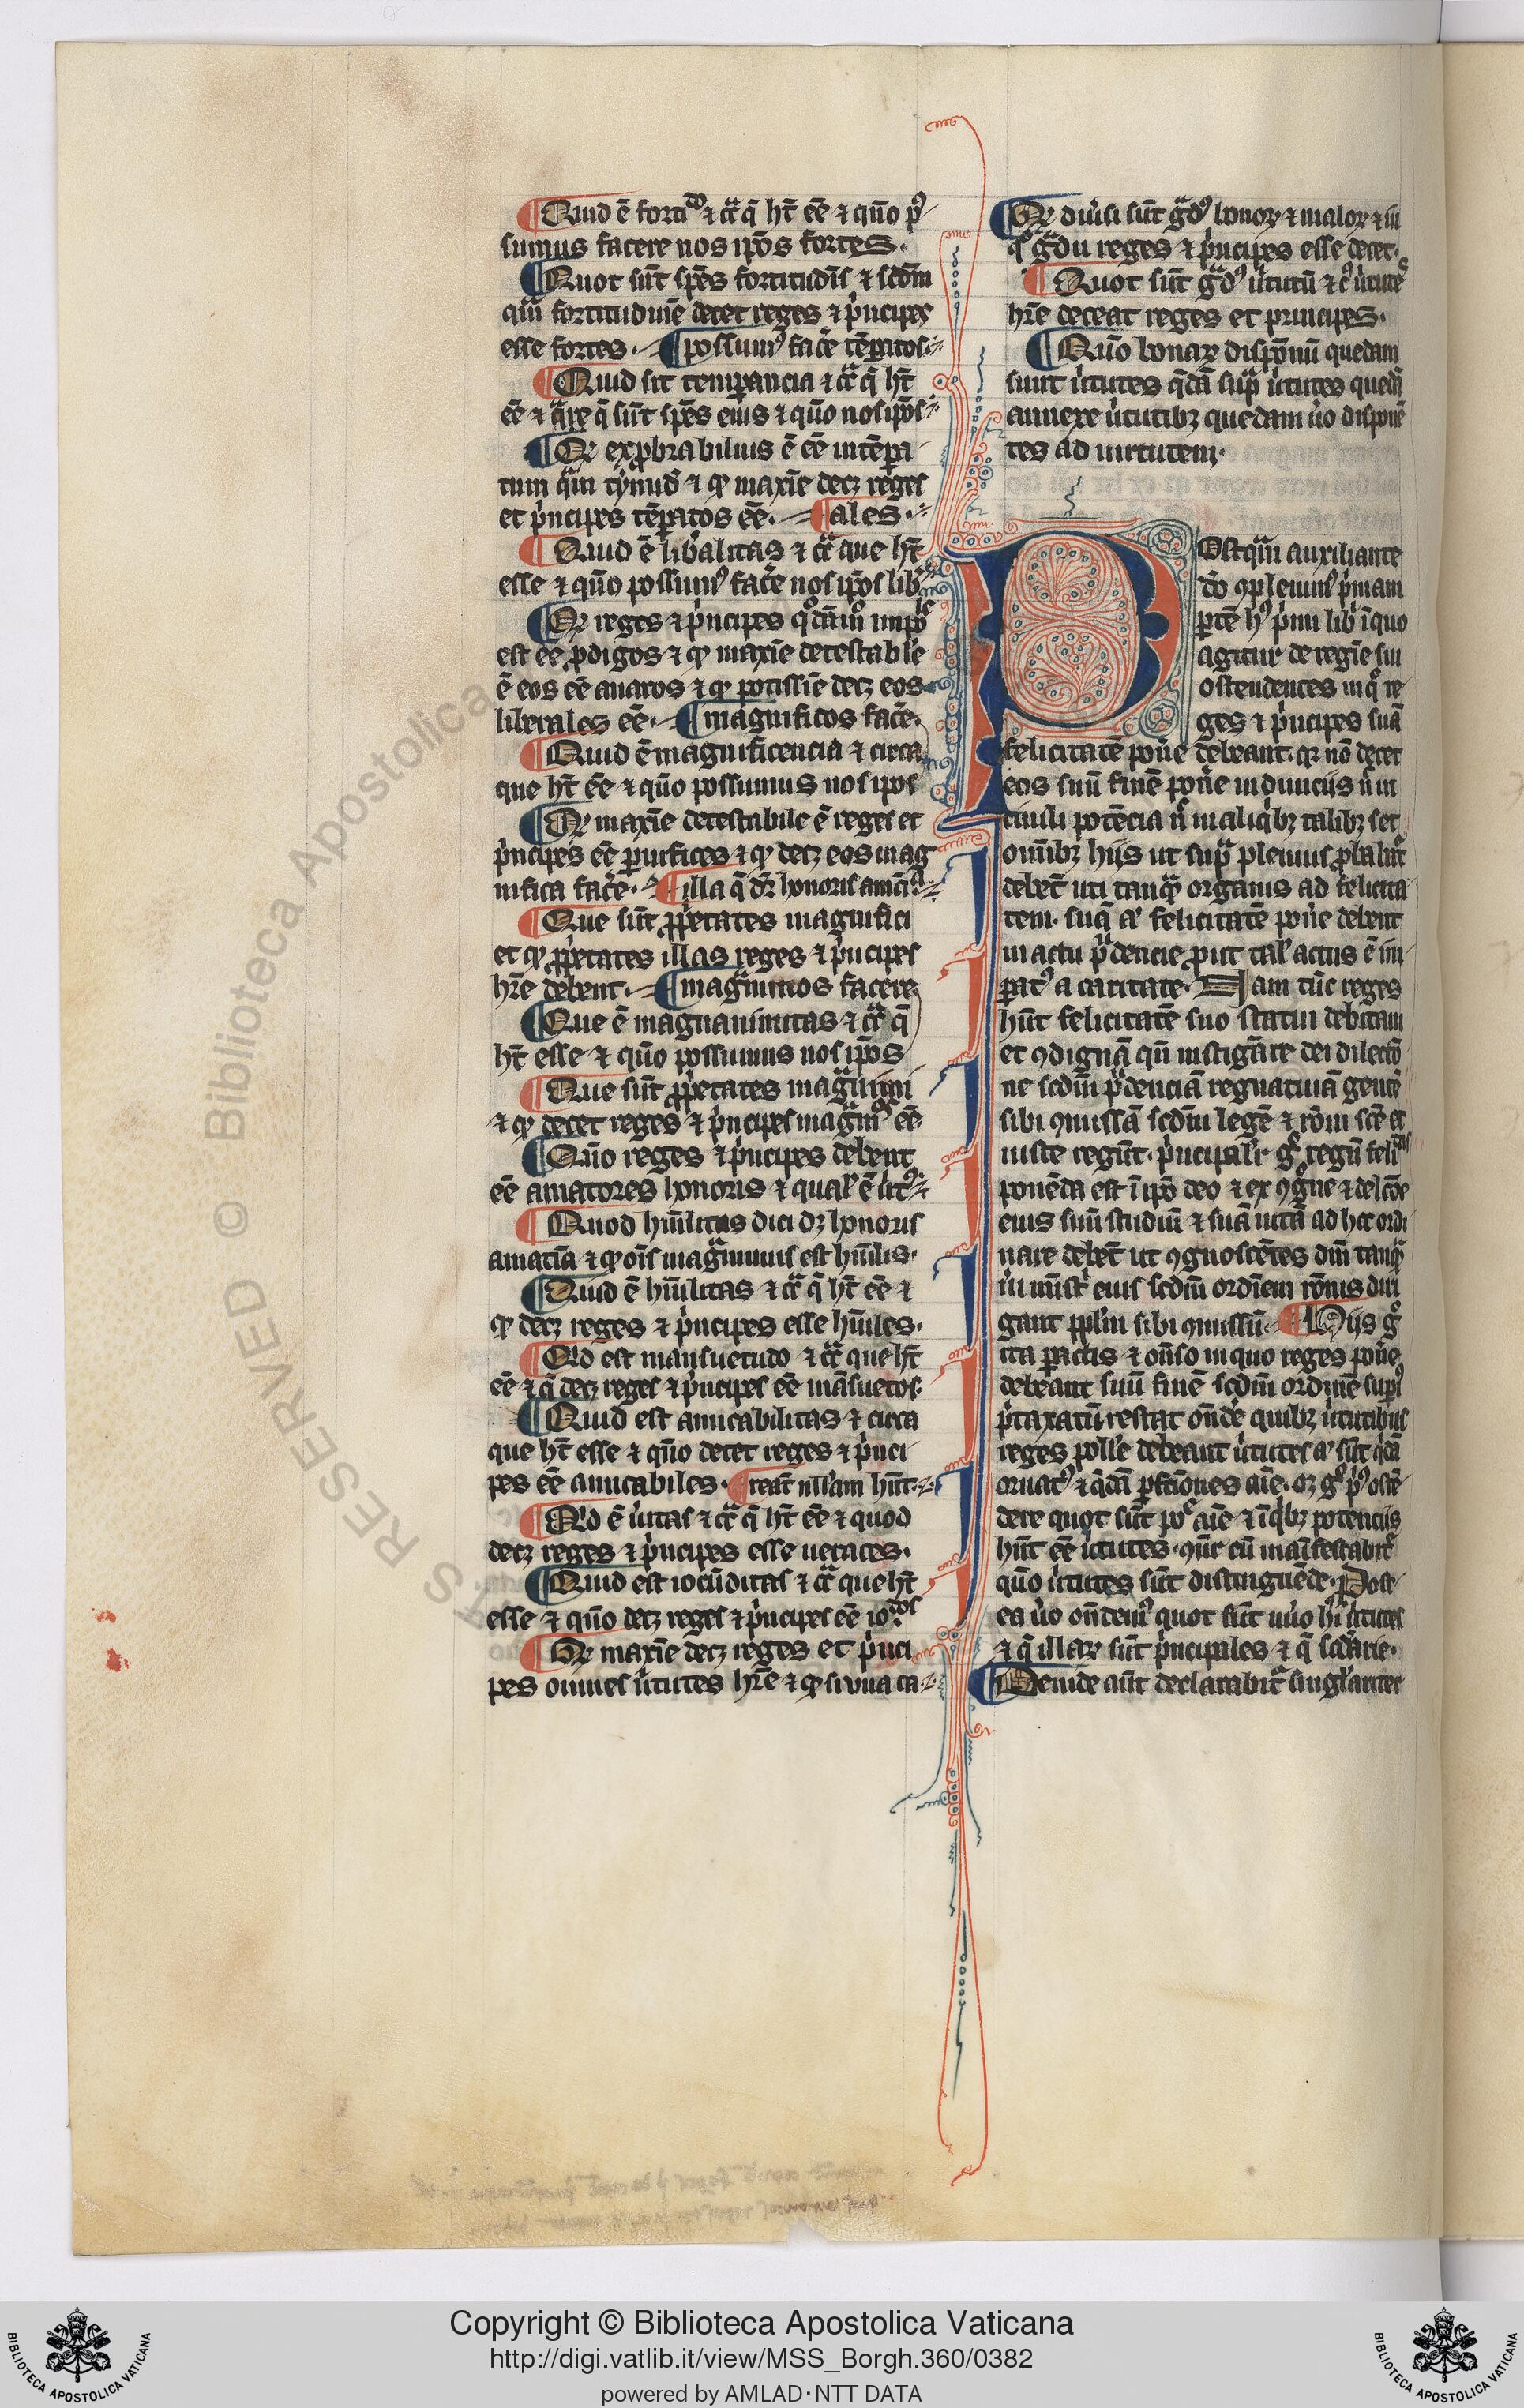 Quid ē fortido ⁊ cͣ q̄ hn̄t ēē ⁊ quo᷒ pᷣ
sumus facere nos ip̄os fortes.
Quot sūt sp̄es fortitudīs ⁊ scd̄m
quā fortitudinē decet reges ⁊ p̓ncipes
esse fortes. possum᷒ fac̄e tēp̄atos.
Quid sit temp̄ancia ⁊ cͣ q̄ hn̄t
ēē ⁊ q̄re q̄ sūt sp̄es eius ⁊ quo᷒ nos ip̄os
Qꝫ exp̄brabilius ē ēē intēpa
tum qͣm tymid᷒ ⁊ ꝙ maxīe decꝫ reges
et p̓ncipes tēp̄atos ēē. ales.
Quid ē lib̓alitas ⁊ cͣ que hn̄t
esse ⁊ quo᷒ possum᷒ fac̄e nos ip̄os lib̓
Qꝫ reges ⁊ p̓ncipes
est ēē ꝓdigos ⁊ ꝙ maxīe detestabl̓e
ē eos ēē auaros ⁊ ꝙ potissīe decꝫ eos
liberales ēē. magnificos fac̄e.
Quid ē magnificencia ⁊ circa
que hn̄t ēē ⁊ quo᷒ possumus nos ipos
Qꝫ maxīe detestabile ē reges et
p̓ncipes ēē paruifices ⁊ ꝙ decꝫ eos mag
nifica fac̄e. illa q̄ dr̄ honoris amāͣ
Que sūt ꝓp̓etates magnifici
et ꝙ ꝓp̓etates illas reges ⁊ p̓ncipes
hr̄e debent. magͣnimos facere
Que ē magnanimitas ⁊ cͣ q̄
hn̄t esse ⁊ quo᷒ possumus nos ip̄os
Que sūt ꝓp̓etates magͣnimi
⁊ ꝙ decet reges ⁊ p̓ncipes magͣnīos ēē
Quo᷒ reges ⁊ p̓ncipes debent
ēē amatores honoris ⁊ qual̓ ē ūt᷒
Quod hūilitas dici dꝫ honoris
amatīa ⁊ ꝙ oīs magͣnimus est hūilis.
Quid ē hūilitas ⁊ cͣ q̄ hn̄t ēē ⁊
ꝙ decꝫ reges ⁊ p̓ncipes esse hūiles.
Qͥd est mansuetudo ⁊ cͣ que hn̄t
ēē ⁊ q̄ decꝫ reges ⁊ p̓ncipes ēē māsuetos.
Quid est amicabilitas ⁊ circa
que hn̄t esse ⁊ quo᷒ decet reges ⁊ p̓nci
pes ēē amicabiles. reāt nllam hn̄t
Qͥd ē ūitas ⁊ cͣ q̄ hn̄t ēē ⁊ quod
decꝫ reges ⁊ p̓ncipes esse ueraces.
Quid est iocūditas ⁊ cͣ que hn̄t
esse ⁊ quo᷒ decꝫ reges ⁊ p̓ncipes ēē io.ͨᵒˢ
Qꝫ maxīe decꝫ reges et p̓nci
pes omnes ūtutes hr̄e ⁊ ꝙ si vna ca
Qꝫ diūsi sūt gͣd᷒ bonoꝝ ⁊ maloꝝ ⁊ in
qͦ gͣdu reges ⁊ p̓ncipes esse decet.
Quot sūt gͣd᷒ ūtutū ⁊ cᷣ ūtutē
hr̄e deceat reges et principes.
Quo᷒ bonaꝝ disp̄onū quedam
sunt ūtutes q̄dā supͣ ūtutes quedā
annexe ūtutibꝫ quedam ūo disponē
tes ad uirtutem.
Postqͣm auxiliante
dō ꝯpleuim᷒ p̓mam
p̄tē hᷣ p̓mi libͥ ī quo
agitur de regīe sui
ostendentes in qͦ re
ges ⁊ p̓ncipes suā
felicitatē pōne debeant. qꝫ nō decet
eos suū finē pōne in diuiciis n̓ in
ciuili potēcia n̓ in aliqͥbꝫ talibꝫ set
omībꝫ hijs ut supͣ plenius ꝓbabit᷑
debēt uti tanqͣꝫ organis ad felicita
tem. suā aͣ felicitatē pōne debent
in actu pͬdencie ꝓut tal̓ actus ē im
p̄at᷒ a caritate. Nam tūc reges
hn̄t felicitatē suo statui debitam
et ꝯdignā qn̄ instigāte dei dilectō
ne scd̄m pͬdenciā regnatiuā gentē
sibi ꝯmissā scd̄m legē ⁊ rōm scē et
iuste regūt. p̓ncipalr̄ gͦ regū feliͨᵃˢ
ponēda est ī ip̄o deo ⁊ ex ꝯgͦne ⁊ delcōe
eius suū studiū ⁊ suā uitā ad hec ordi
nare debēt ut ꝯgnoscētes dīm tanqͣꝫ
ūi mīstͥ eius scd̄m ordīem rōnis diri
gant pplm̄ sibi ꝯmissū. Hijs gͦ
ita p̄actis ⁊ on̄so in quo reges pōne
debeant suū finē scd̄m ordinē supi᷒
p̓taxatū restat on̄de quibꝫ ūtutibus
reges pollē debeant ūtutes aͣ sūt q̄dā
ornat᷒ ⁊ q̄dā ꝑfc̄iones aīe. oꝫ gͦ pͥ᷒ ostē
dere quot sūt poͨ aīe ⁊ ī qͥbꝫ potenciis
hn̄t ēē ūtutes. qūr cū māifestabit᷑
quo᷒ ūtutes sūt distinguēde. Post
ea ūo on̄dem᷒ quot sūt nūo hͥ ūtutes
⁊ q̄ illaꝝ sūt p̓ncipales ⁊ q̄ scd̄arie.
Deinde aūt declarabit᷑ singl̓ariter
Copyright © Biblioteca Apostolica Vaticana
http://digi.vatlib.it/view/MSS_Borgh.360/0382
powered by AMLAD·NTT DATA
BIBLIOTECA APOSTOLICA VATICANA
BIBLIOTECA APOSTOLICA VATICANA
Biblioteca Apostolica
©
RESERVED
TS